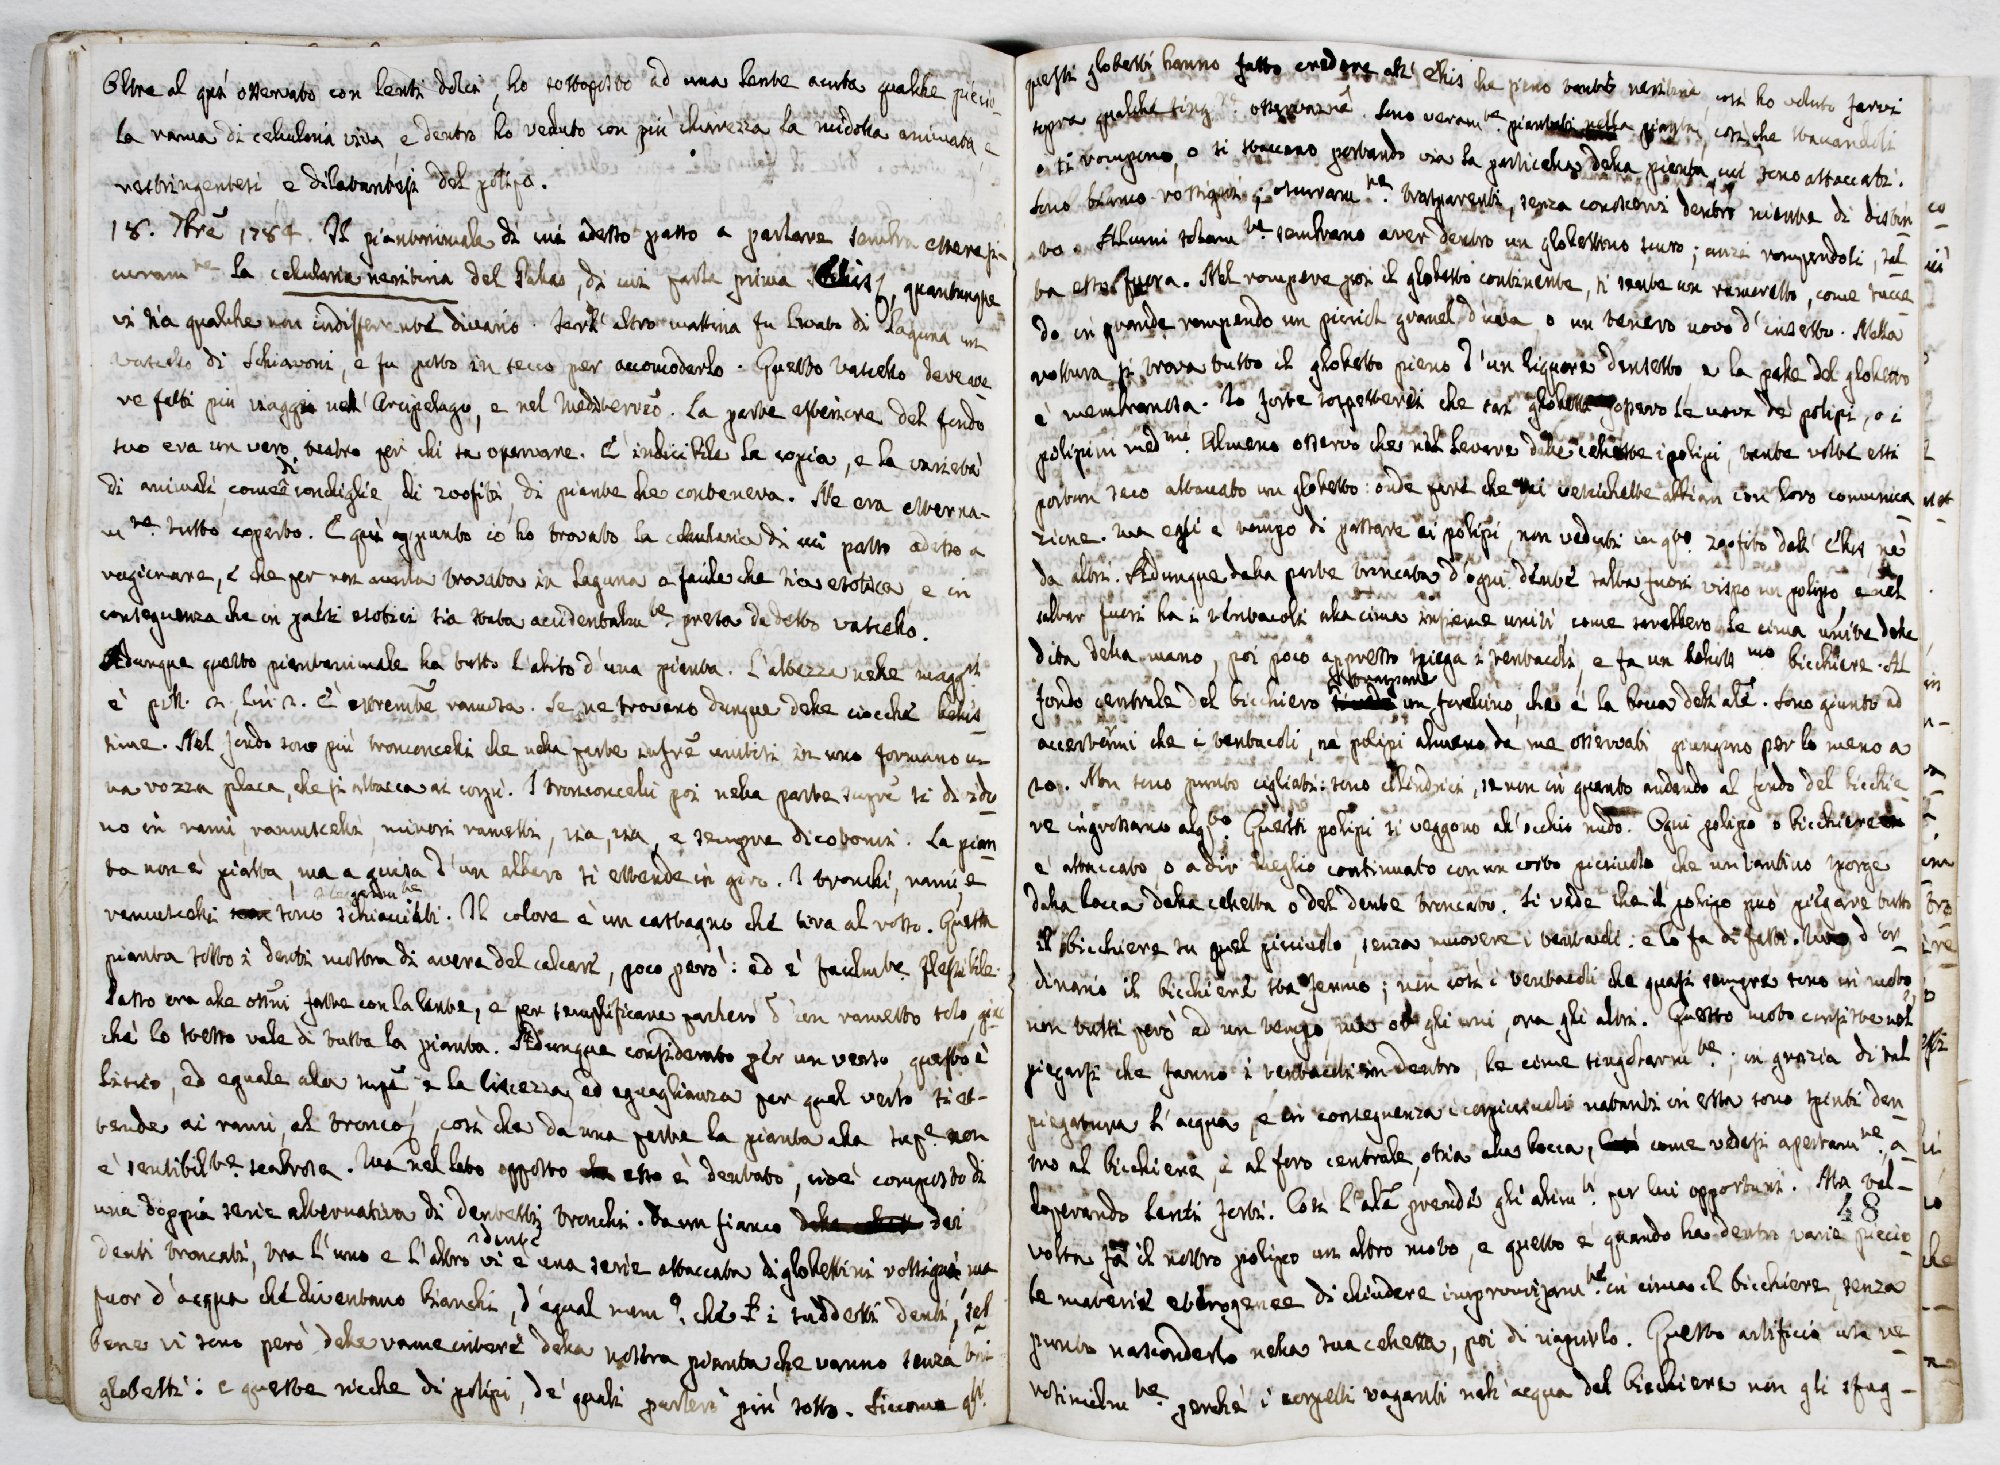 Oltre al quì osservato con lenti dolci, ho sottoposto ad una lente acuta qualche picio-
la rama di cellularia viva e dentro ho veduto con più chiarezza la midolla animata e
restringentesi e dilatantesi del polipo.
18. 7bre 1784. Il piantanimale di cui adesso passo a parlare sembra essere si-
curam.te la cellularia neritina del Pallas, di cui parla prima Ellis, quantunque
vi sia qualche non indifferente divario. Jerl'altro mattina fu levato di Laguna un
vascello di Schiavoni, e fu posto in secco per accomodarlo. Questo vascello deve ave-
re fatti più viaggi nell'Arcipelago, e nel Mediterreo. La parte esteriore del fondo
suo era un vero teatro per chi sa osservare. È indicibile la copia, e la varietà
di animali come di conchiglie, di zoofiti, di piante che conteneva. Ne era esterna-
m.te tutto coperto. E quì appunto io ho trovato la cellularia di cui passo adesso a
ragionare, e che per non averla trovata in Laguna è facile che sia esotica e in
conseguenza che in paesi esotici sia stata accidentalm.te presa da detto vascello.
Adunque questo piantanimale ha tutto l'abito d'una pianta. L'altezza nelle maggri
è poll. 2, lin. 2. È estreme ramosa. Se ne trovano dunque delle ciocche bellis-
sime. Nel fondo sono più tronconcelli che nella parte infre unitisi in uno formano u-
na rozza placa, che si attacca ai corpi. I tronconcelli poi nella parte supre si divido
no in rami, ramuscelli, minori rametti, via, via, e sempre dicotomi. La pian-
ta non è piatta, ma a guisa d'un albero si estende in giro. I tronchi, rami e
ramuscelli sono leggerm.te schiacciati. Il colore è un castagno che tira al rosso. Questa
pianta sotto i denti mostra di avere del calcare, poco però: ed è facilm.te flessibile.
Passo ora alle ossni fatte con la lente, e per semplificare parlerò d'un rametto solo, gia-
chè lo stesso vale di tutta la pianta. Adunque considerato per un verso, questo è
liscio, ed eguale alla supe e la liscezza, ed eguaglianza per quel verso si es-
tende ai rami, al tronco, così che da una parte la pianta alla supe. non
è sensibil.te scabrosa. Ma nel lato opposto esso è dentato, cioè composto di
una doppia serie alternativa di dentetti tronchi. Da un fianco dei
denti troncati, tra l'uno e l'altro dente vi è una serie attaccata di globettini rossigni ma
fuor d'acqua che diventano bianchi, d'egual num.o che i suddetti denti, seb-
bene vi sono però delle rame intere della nostra pianta che vanno senza tai
globetti: e queste ricche di polipi, de' quali parlerò più sotto. Siccome qsti
questi globetti hanno fatto credere all'Ellis che siano tante neritine così ho voluto farvi
sopra qualche sing.re osservazne. Sono veram.te piantati nella pianta, così che staccandoli
o si rompono, o si staccano portando via la particella della pianta cui sono attaccati.
Sono bianco-rossigni; oscuram.te trasparenti, senza conoscervi dentro niente di distin-
to. Alcuni soltam.te sembrano aver dentro un globettino scuro; anzi rompendoli, sal-
ta esso fuora. Nel rompere poi il globetto continente, si sente un rumoretto, come succe
de in grande rompendo un piciol granel d'uva o un tenero uovo d'insetto. Nella
rottura si trova tutto il globetto pieno d'un liquore densetto, e la pelle del globetto
è membranosa. Io forte sospetterei che tai globetti sopero le uova de' polipi, o i
polipini med.mi. Almeno osservo che nel levare dalle cellette i polipi, tante volte essi
portan seco attaccato un globetto: onde pare che tai vescichette abbian con loro comunica
zione. Ma egli è tempo di passare ai polipi, non veduti in q.to zoofito dall'Ellis, nè
da altri. Adunque dalla parte troncata d'ogni dente salta fuori vispo un polipo, e nel
saltar fuori ha i tentacoli alla cima insieme uniti, come sarebbero le cima unite delle
dita della mano, poi poco appresso spiega i tentacoli, e fa un bellis.mo bicchiere. Al
fondo centrale del bicchiero un forellino, che è la bocca dell'ale. Sono giunto ad
accertarmi che i tentacoli, ne' polipi almeno da me osservati giungono per lo meno a
20. Non sono punto cigliati: sono cilindrici, se non in quanto andando al fondo del bicchie-
re ingrossano alq.to. Questi polipi si veggono all'occhio nudo. Ogni polipo o bicchiere
è attaccato, o a dir meglio continuato con un corto picciuolo che un tantino sporge
dalla bocca della celletta o del dente troncato. Si vede che il polipo può piegare tutto
il bicchiere su quel picciuolo, senza muovere i tentacoli: e lo fa di fatti. Ma d'or-
dinario il bicchiere sta fermo; non così i tentacoli che quasi sempre sono in moto,
non tutti però ad un tempo ma or gli uni, ora gli altri. Questo moto consiste nel
piegarsi che fanno i tentacoli in dentro, le cime singolarm.te; in grazia di tal
piegatura l'acqua, e in conseguenza i corpicciuoli natanti in essa sono spinti den-
tro al bicchiere, e al foro centrale, ossia alla bocca, come vedesi apertam.te a-
doperando lenti forti. Così l'ale prende gli alim.ti per lui opportuni. Alla vol-
48
volta fa il nostro polipo un altro moto, e questo è quando ha dentro varie piccio
le materie eterogenee di chiudere improvvisam.te in cima il bicchiere, senza
punto nasconderlo nella sua celletta, poi di riaprirlo. Questo artificio usa ve
rosimilm.te perchè i corpetti vaganti nell'acqua del bicchiere non gli sfug-